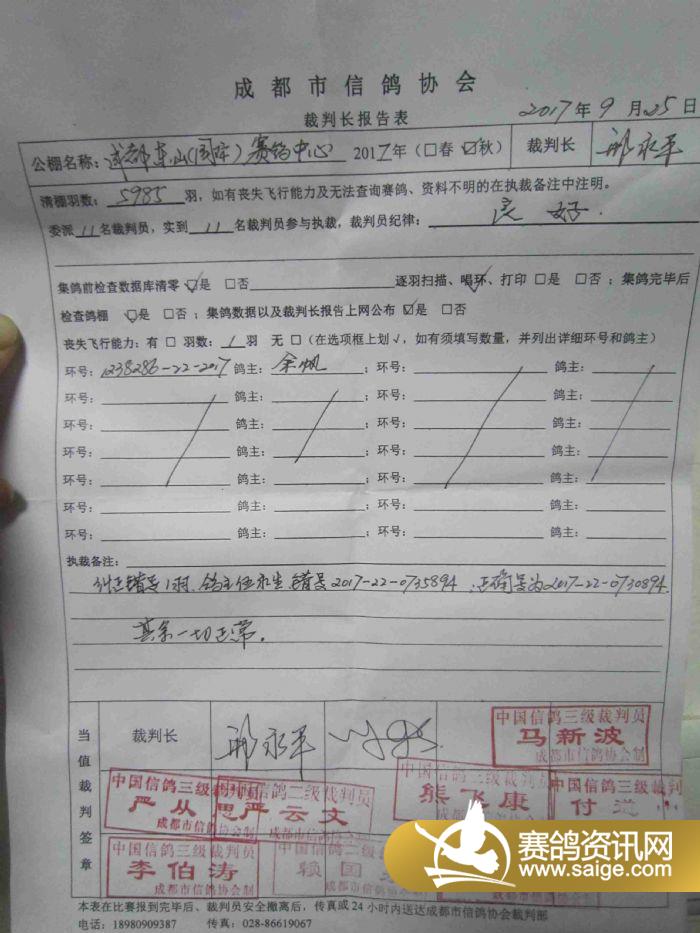 成都市信鸽协会
裁判长报告表
2017年9月25日
公棚名称：成都东山(国际)赛鸽中心 2017年（□春 ☑秋） 裁判长 邢永平
清棚羽数：5985羽，如有丧失飞行能力及无法查询赛鸽、资料不明的在执裁备注中注明。
委派11名裁判员，实到11名裁判员参与执裁，裁判员纪律：良好．
集鸽前检查数据库清零 ☑是 □否 逐羽扫描、唱环、打印 □是 □否；集鸽完毕后
检查鸽棚 ☑是 □否；集鸽数据以及裁判长报告上网公布 ☑是 □否
丧失飞行能力：有 □ 羽数：1羽 无 □（在选项框上划√，如有须填写数量，并列出详细环号和鸽主）
环号：1238286-22-2017 鸽主：余帆；环号： 鸽主：
环号： 鸽主：；环号： 鸽主：
环号： 鸽主：；环号： 鸽主：
环号： 鸽主：；环号： 鸽主：
环号： 鸽主：；环号： 鸽主：
环号： 鸽主：；环号： 鸽主：
环号： 鸽主：；环号： 鸽主：
执裁备注：
纠正错号1羽．鸽主伍永生 错号2017-22-0735894．正确号为2017-22-0730894．
其余一切正常．
当值裁判签章
裁判长 邢永平
中国信鸽三级裁判员
马新波
成都市信鸽协会制
中国信鸽三级裁判员
严从思
成都市信鸽协会制
二级裁判员
严云文
成都市信鸽协会制
中国信鸽三级裁判员
熊飞康
中国信鸽三级裁判
付
中国信鸽三级裁判员
李伯涛
成都市信鸽协会制
赖国
赛鸽资讯网
www.saige.com
本表在比赛报到完毕后、裁判员安全撤离后，传真或24小时内送达成都市信鸽协会裁判部
电话：18980909387 传真：028-86619067